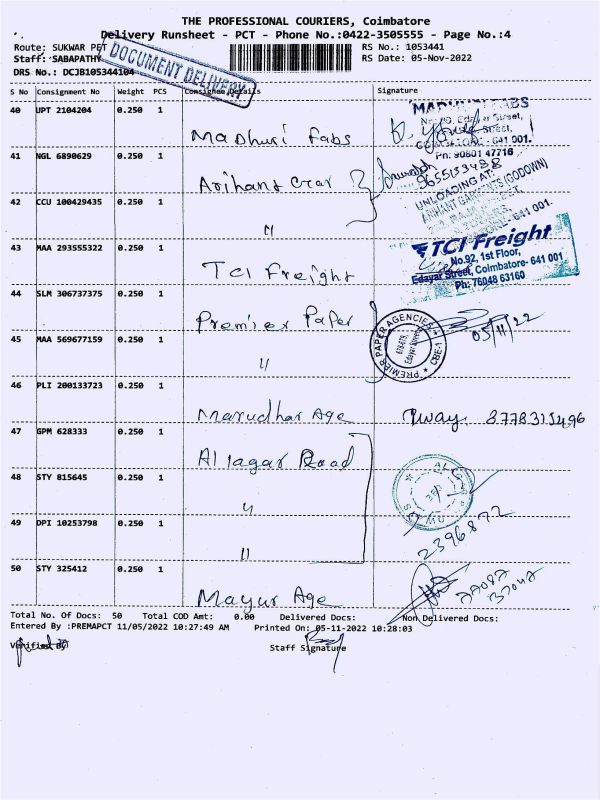 THE PROFESSIONAL COURIERS, Coimbatore
Delivery Runsheet - PCT - Phone No.:0422-3505555 - Page No.:4
Route: SUKWAR PET RS No.: 1053441
Staff: SABAPATHY RS Date: 05-Nov-2022
DRS No.: DCJB105344104
DOCUMENT DELIVERY
S No Consignment No Weight PCS Consignee Details Signature
40 UPT 2104204 0.250 1 Madhuri Fabs
Pn: 90801 47716
41 NGL 6890629 0.250 1 Arihant
9655133488
UNLOADING AT:
ARIHANT GARMENTS (GODOWN)
42 CCU 100429435 0.250 1 "
641 001.
43 MAA 293555322 0.250 1 TCI Freight
TCI Freight
No.92, 1st Floor,
Edayar Street, Coimbatore- 641 001
Ph: 76048 63160
44 SLM 306737375 0.250 1 Premier Paper
PREMIER PAPER AGENCIES
CBE-1
05/11/22
45 MAA 569677159 0.250 1 "
46 PLI 200133723 0.250 1 Marudhar Age 8778315496
47 GPM 628333 0.250 1 Allagar Road
48 STY 815645 0.250 1 "
49 DPI 10253798 0.250 1 "
2396872
50 STY 325412 0.250 1 Mayur Age
Total No. Of Docs: 50 Total COD Amt: 0.00 Delivered Docs: Non Delivered Docs:
Entered By :PREMAPCT 11/05/2022 10:27:49 AM Printed On: 05-11-2022 10:28:03
Verified By Staff Signature